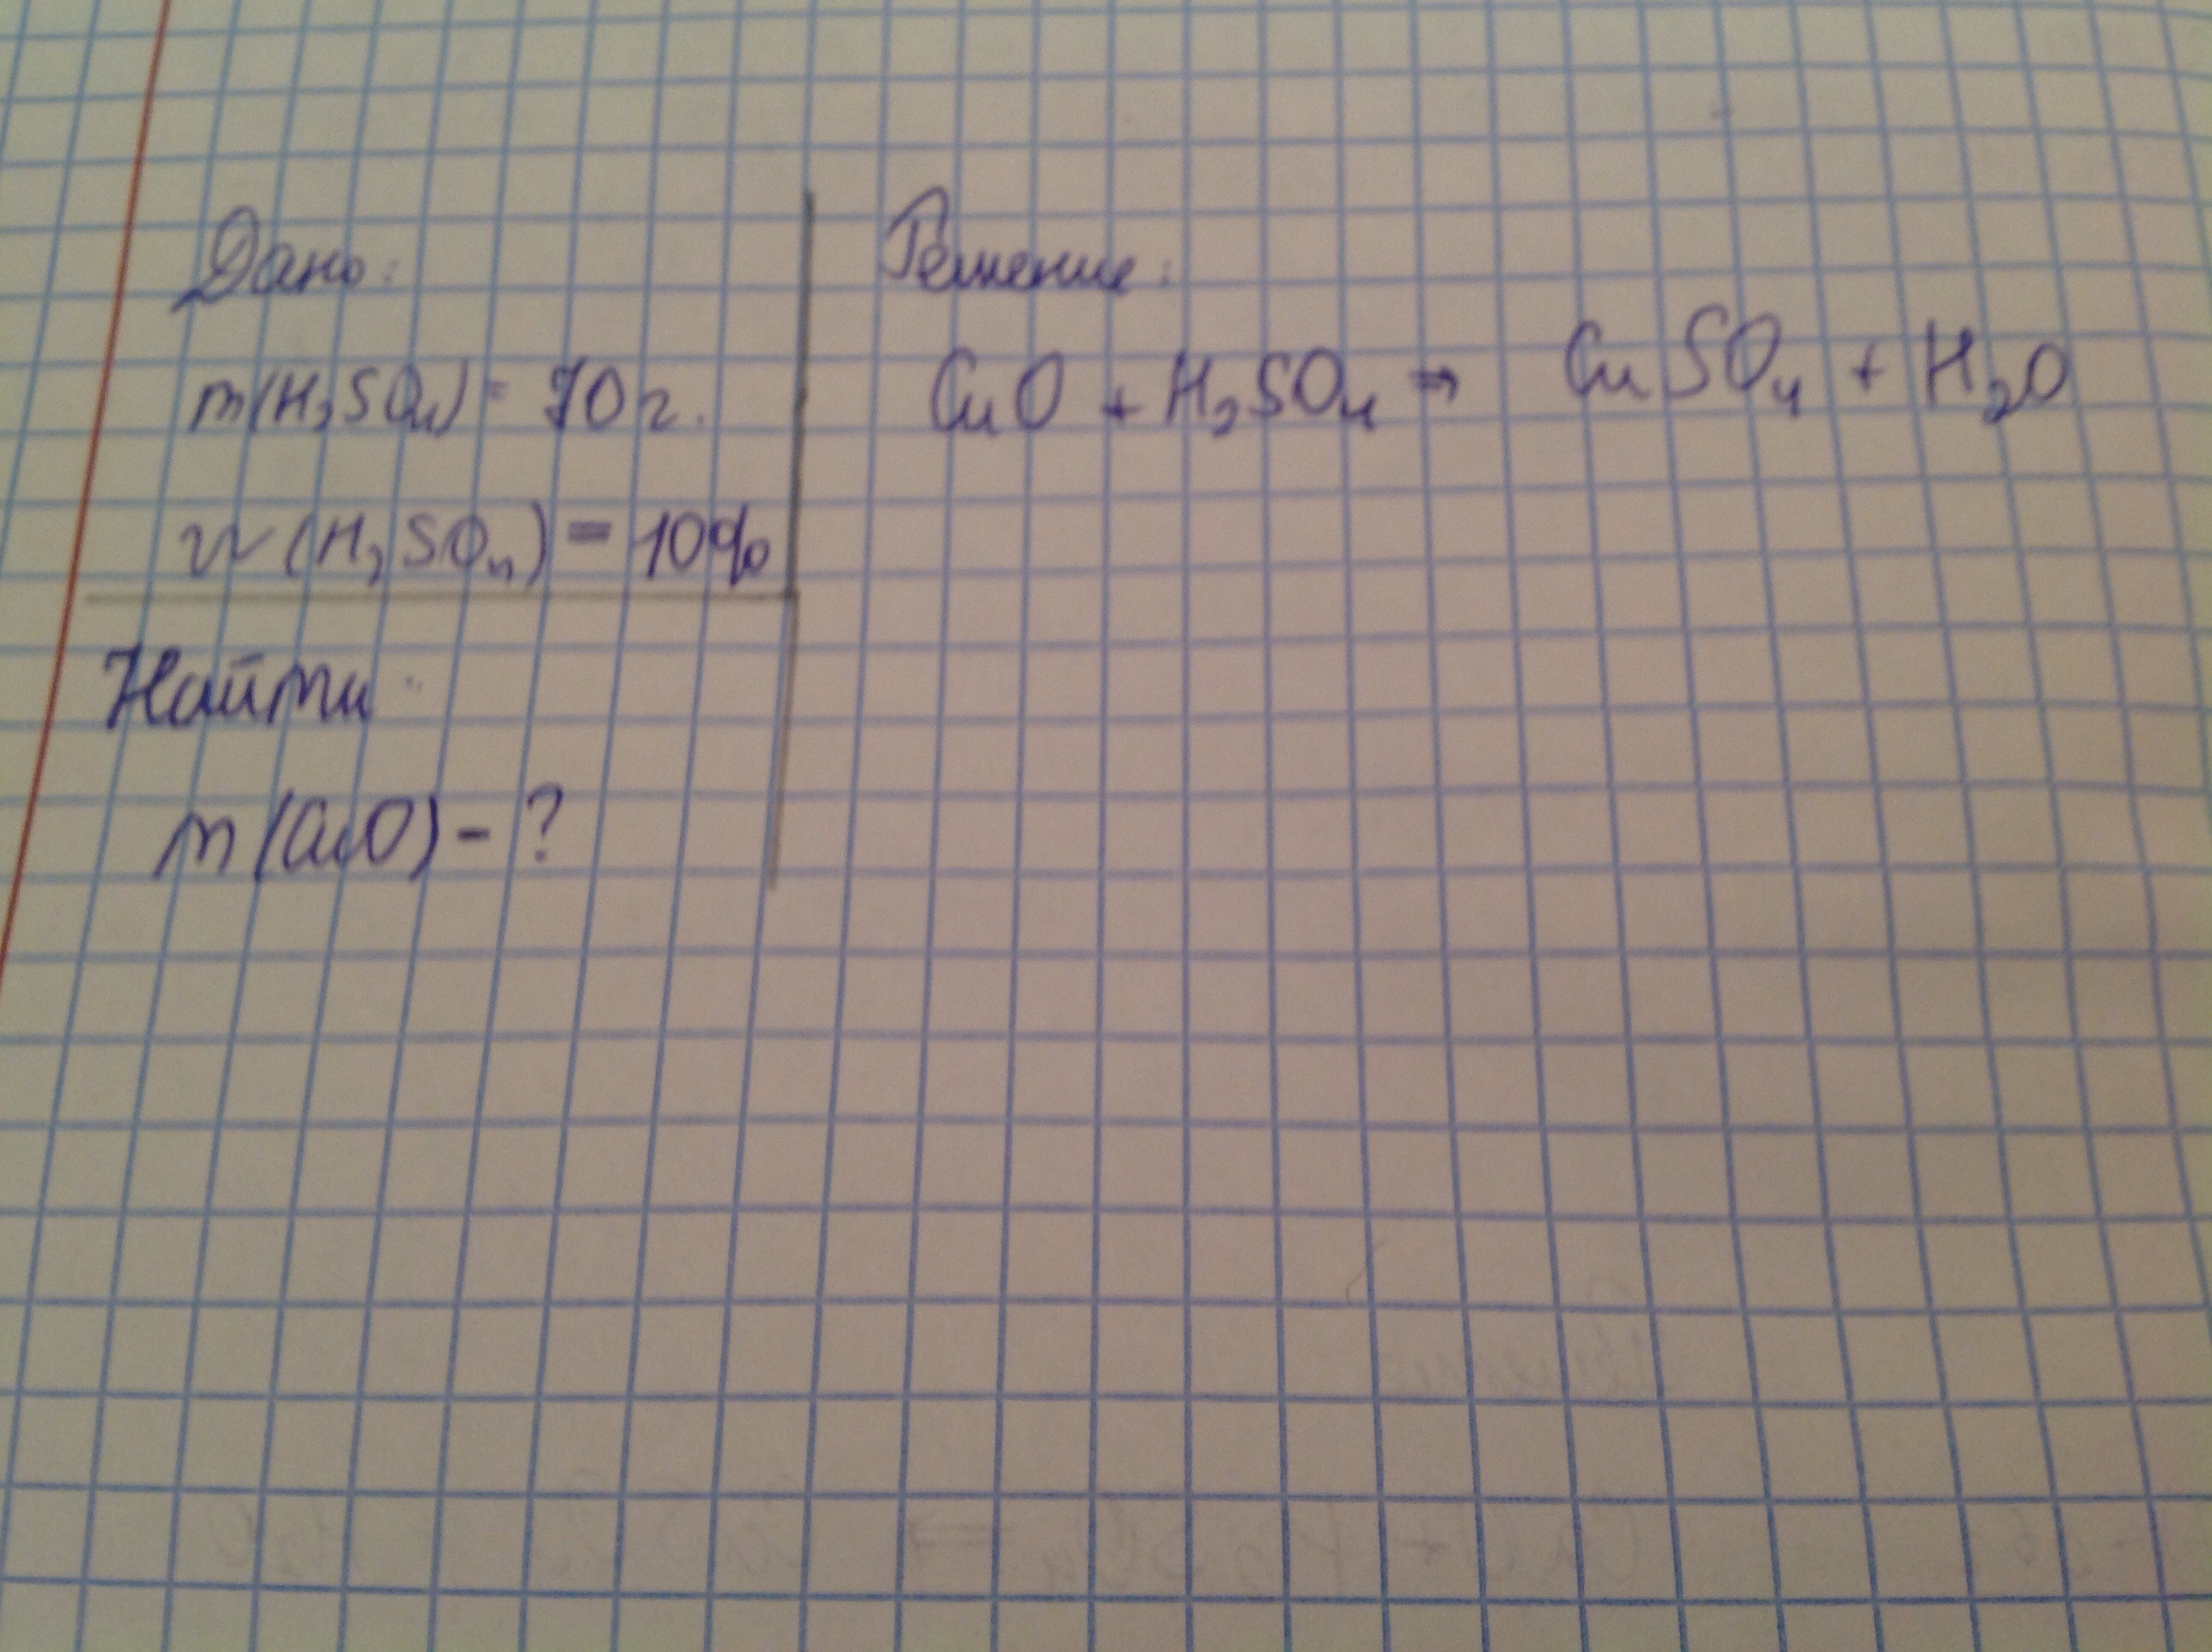 Дано:
m(H₂SO₄) = 70 г.
w(H₂SO₄) = 10%
Найти:
m(CuO) - ?
Решение:
CuO + H₂SO₄ → CuSO₄ + H₂O